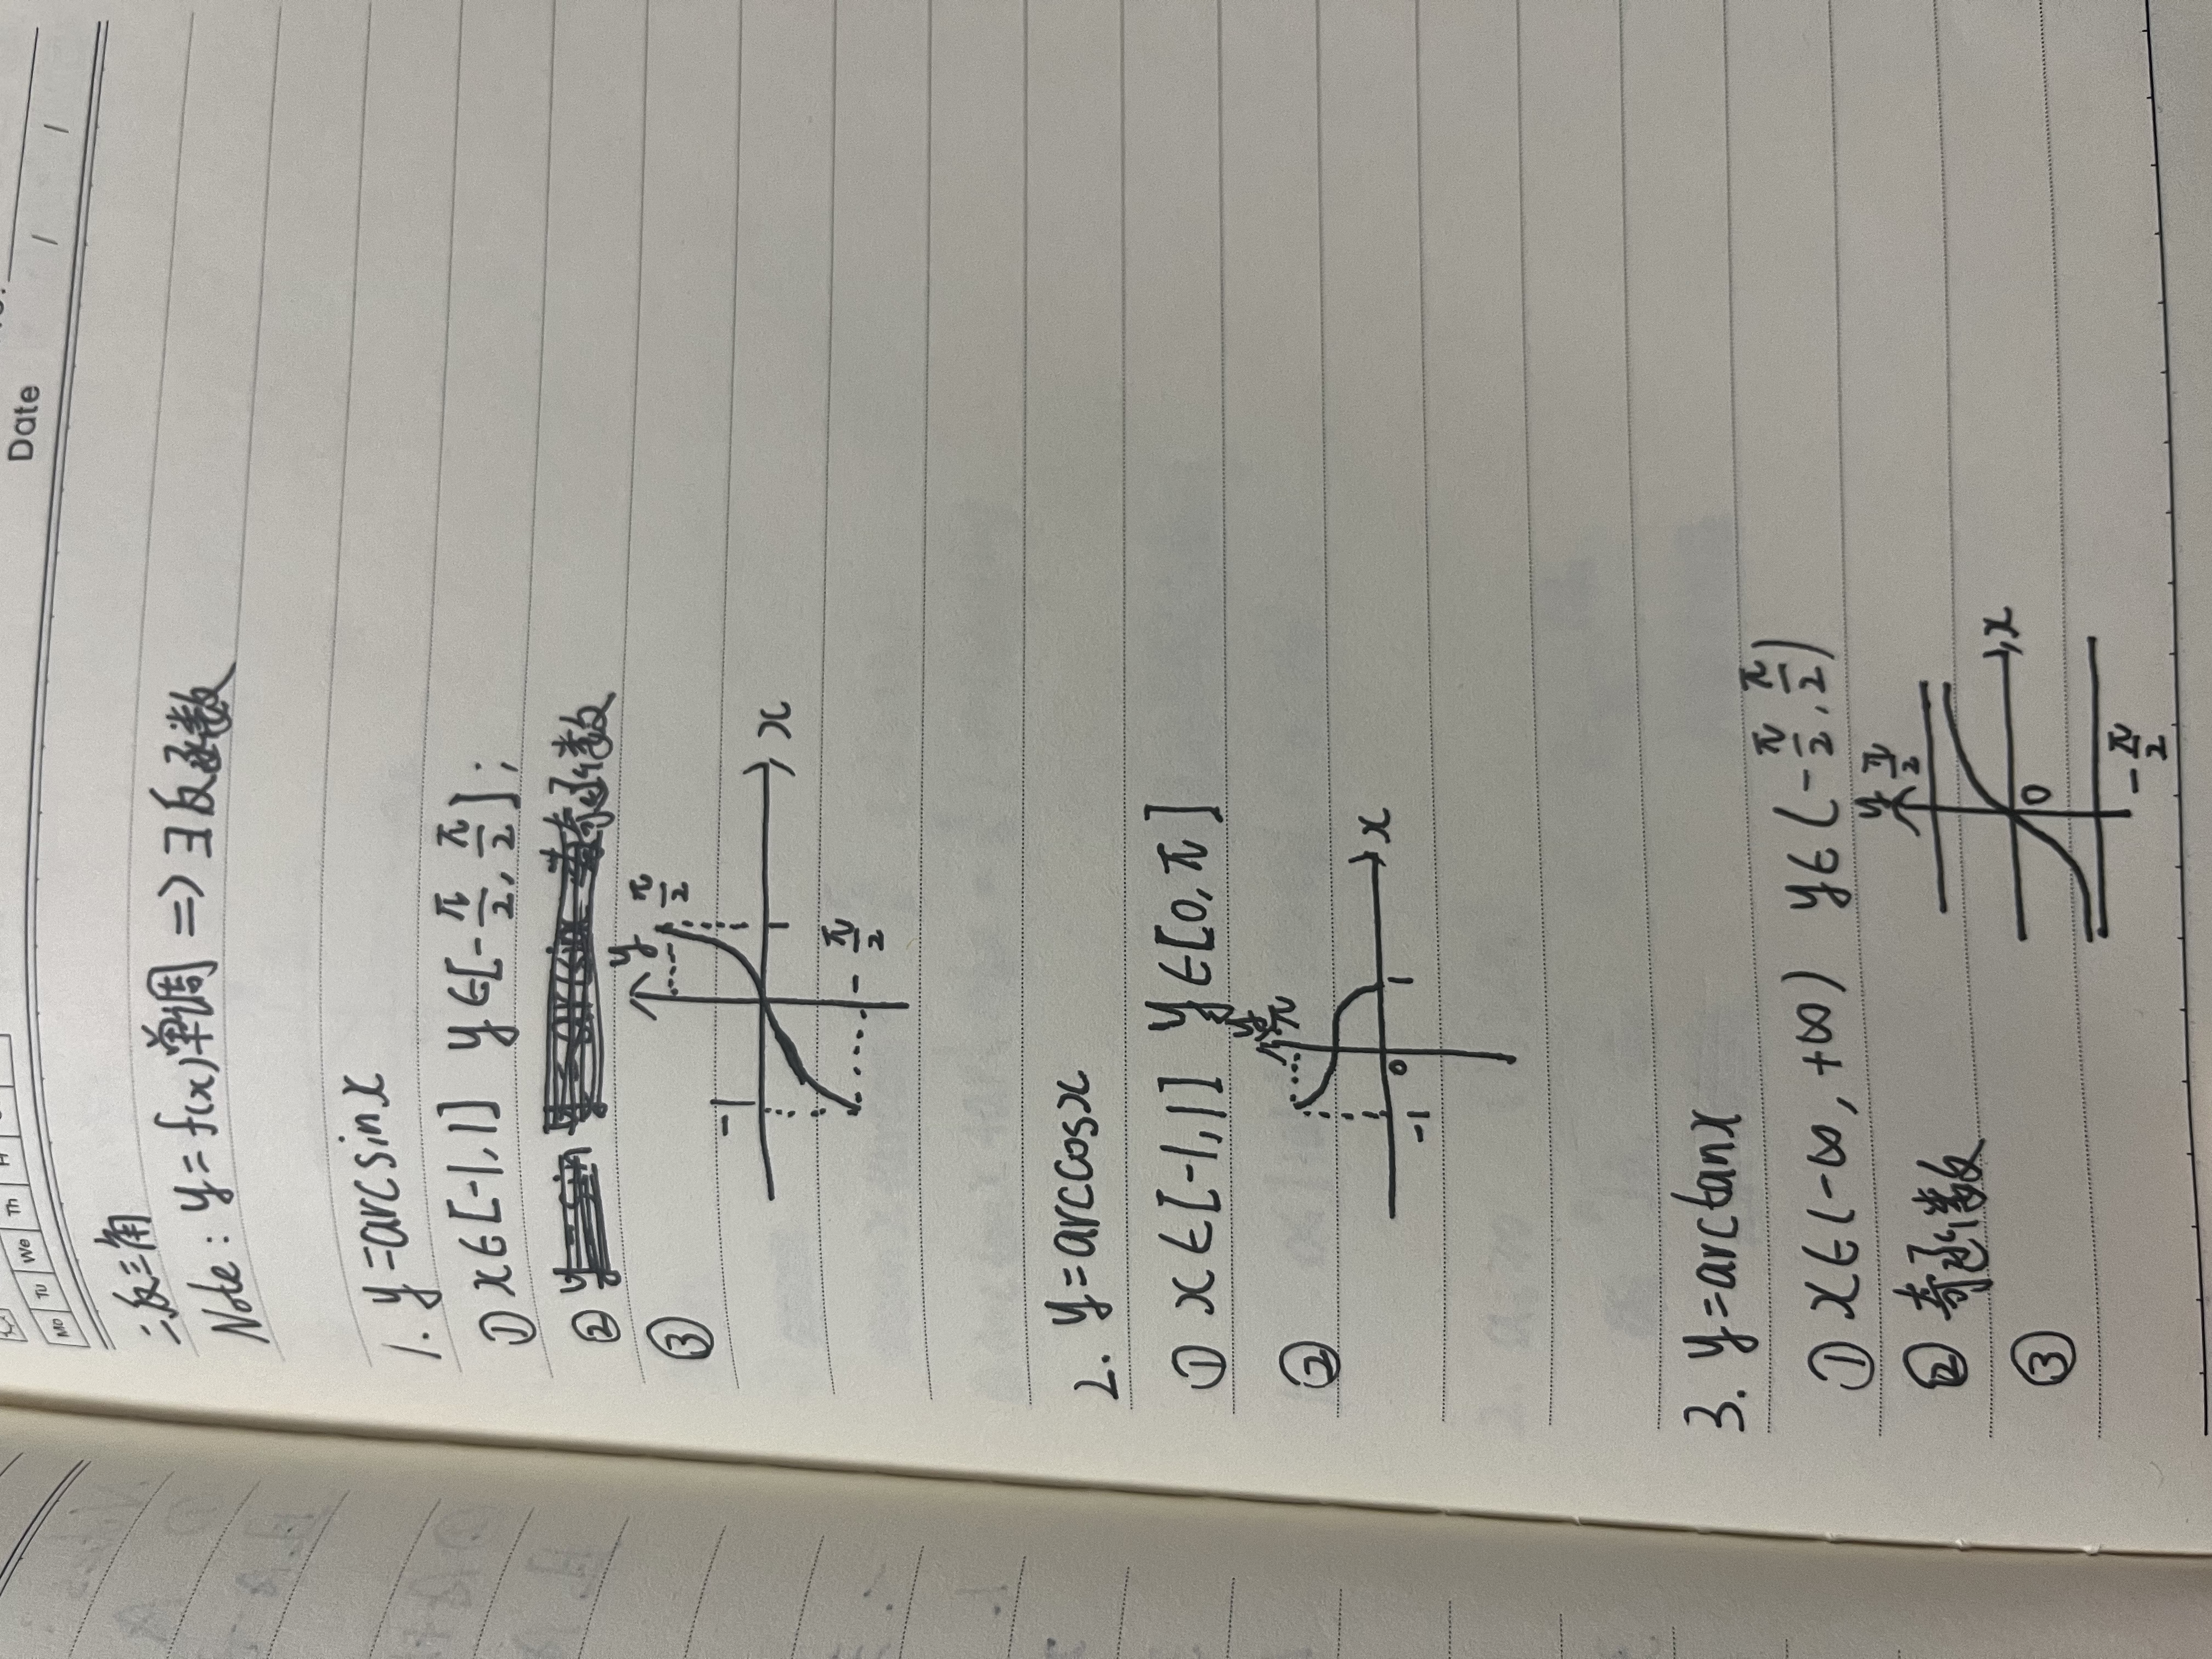 Date / /
Mo Tu We Th
二、反三角
Note: y=f(x)单周 => ∃反函数
1. y=arcsinx
① x∈[-1,1] y∈[-π/2, π/2];
② 奇函数
③
y π/2
-1 1 x
-π/2
2. y=arccosx
① x∈[-1,1] y∈[0,π]
②
y π
-1 0 1 x
3. y=arctanx
① x∈(-∞,+∞) y∈(-π/2, π/2)
② 奇函数
③
y π/2
0 x
-π/2